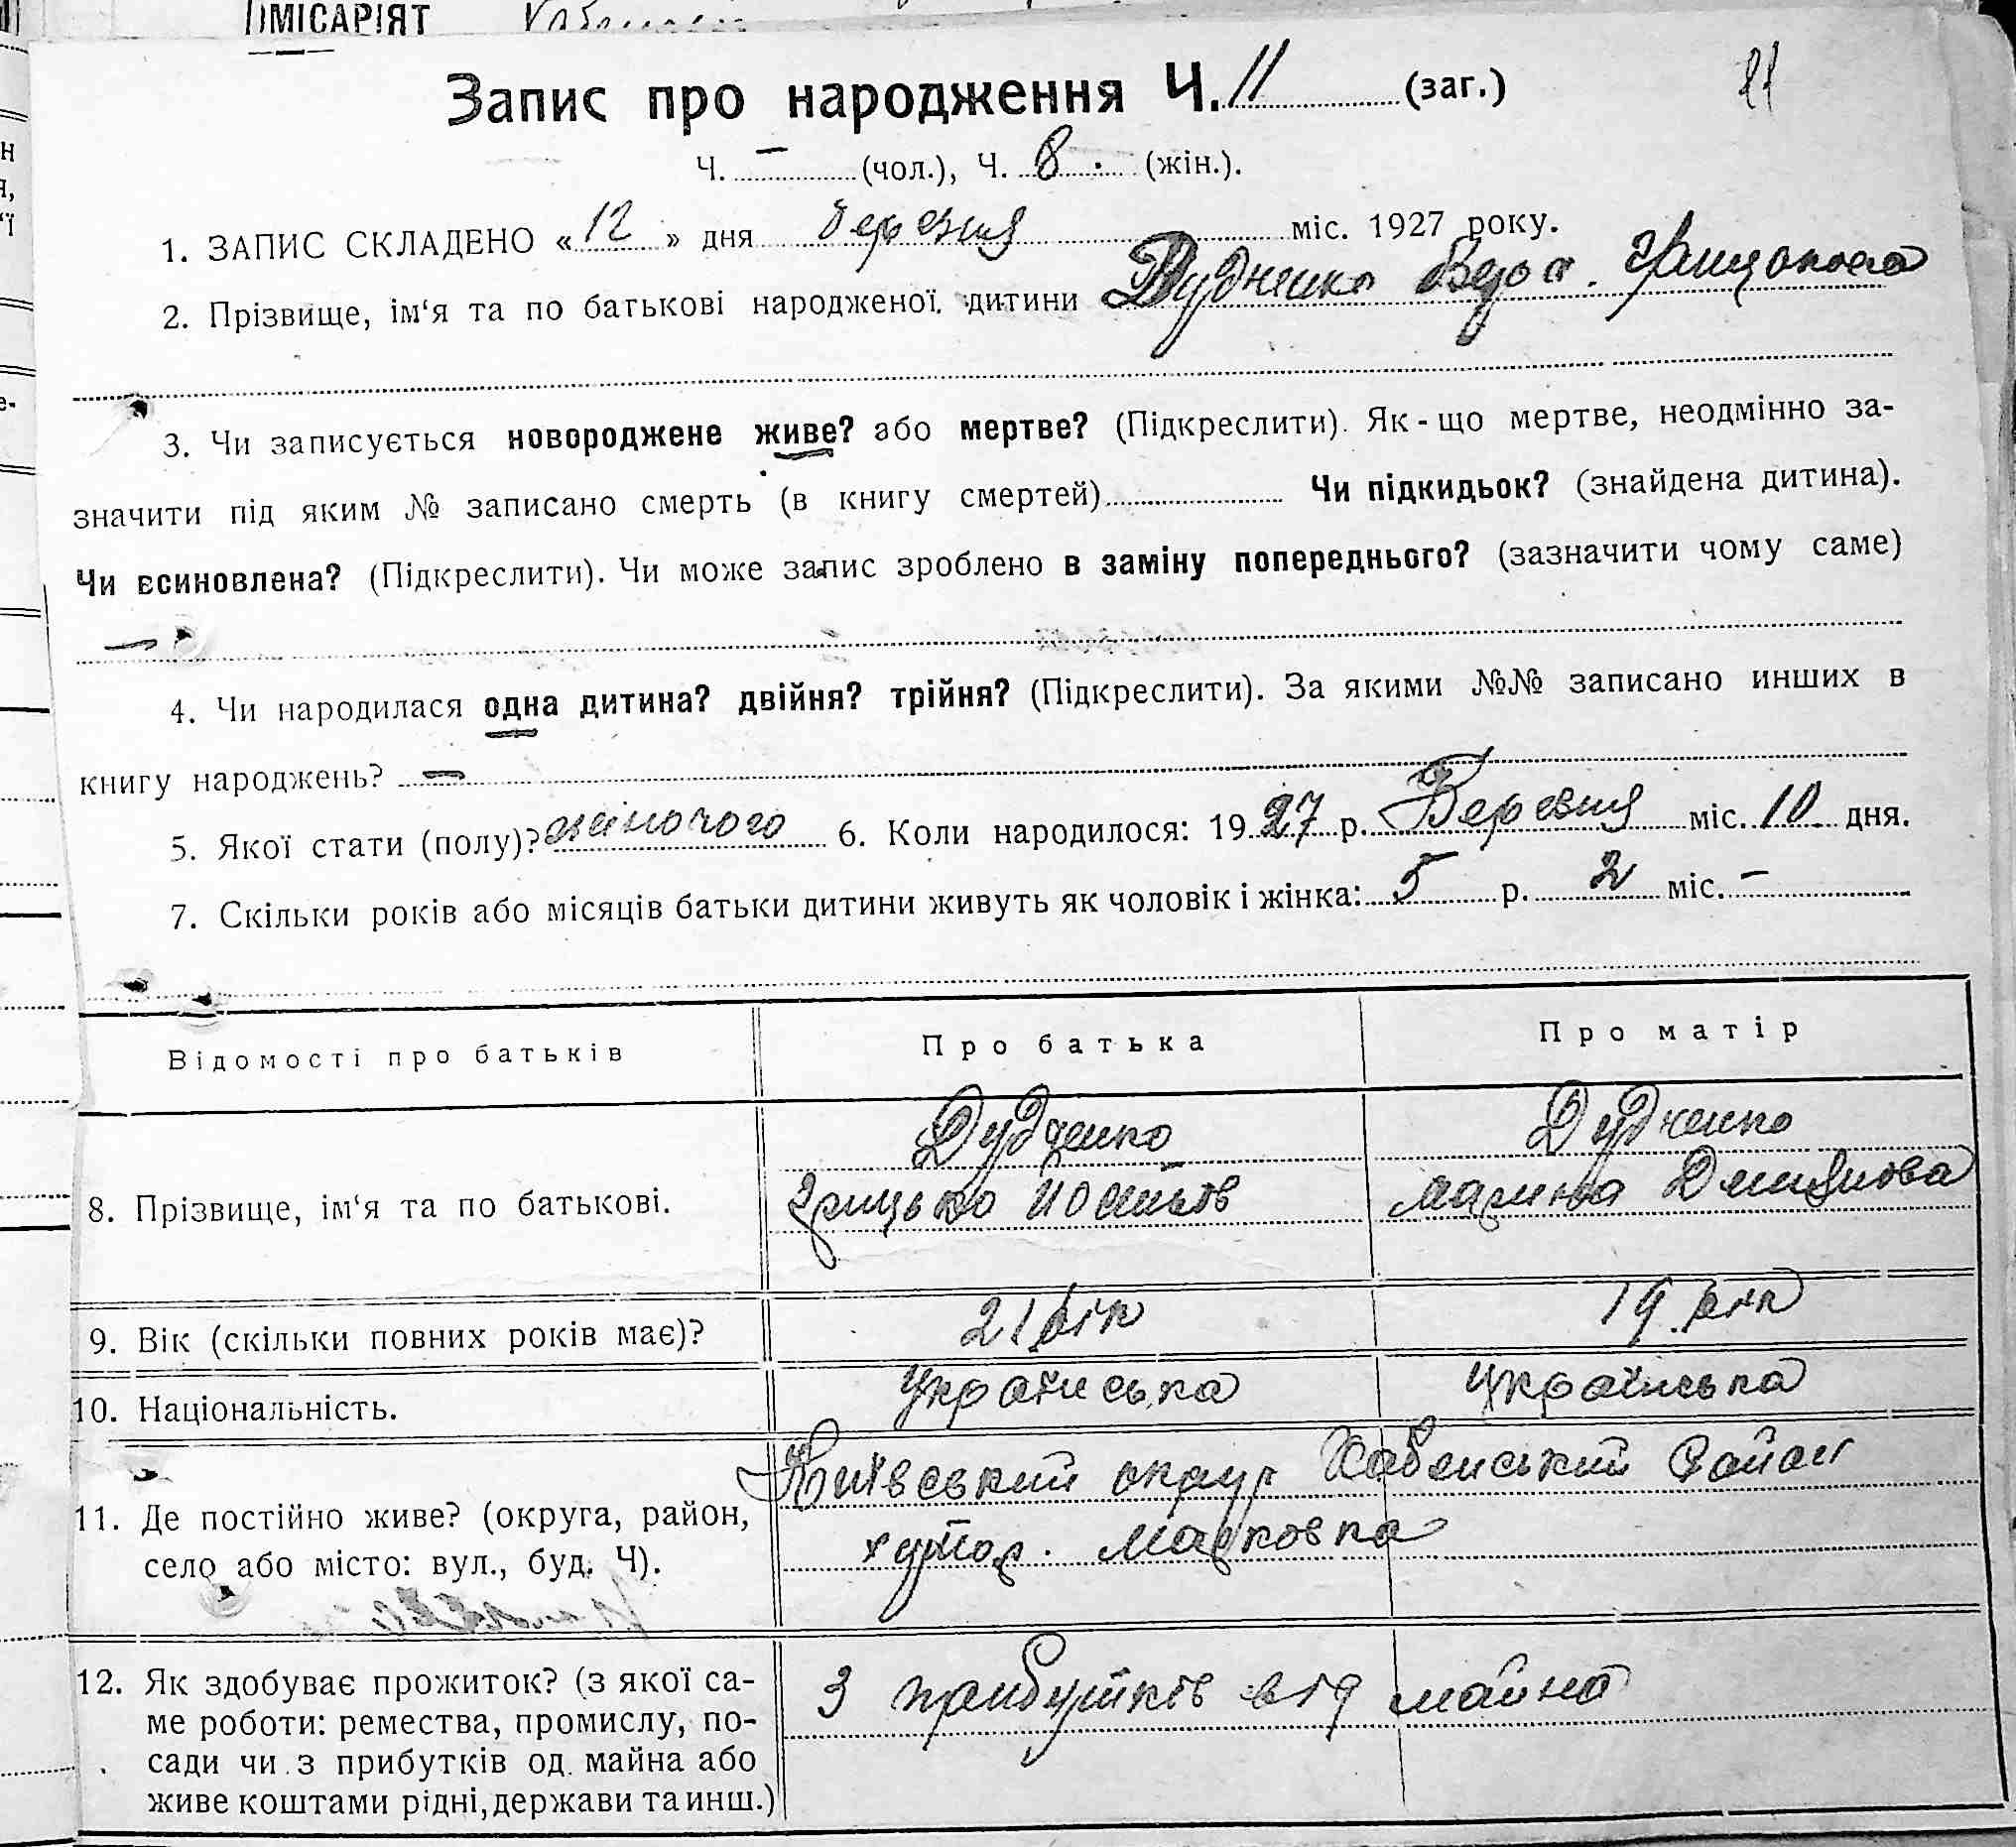 ОМІСАРІЯТ
Запис про народження Ч. 11 (заг.) 11
Ч. – (чол.), Ч. 8. (жін.).
1. ЗАПИС СКЛАДЕНО « 12 » дня березня міс. 1927 року.
2. Прізвище, ім‘я та по батькові народженої дитини Дудченко Вера Грицькова
3. Чи записується новороджене живе? або мертве? (Підкреслити). Як-що мертве, неодмінно за-
значити під яким № записано смерть (в книгу смертей) Чи підкидьок? (знайдена дитина).
Чи всиновлена? (Підкреслити). Чи може запис зроблено в заміну попереднього? (зазначити чому саме)
–
4. Чи народилася одна дитина? двійня? трійня? (Підкреслити). За якими №№ записано инших в
книгу народжень? –
5. Якої стати (полу)? жіночого 6. Коли народилося: 1927 р. Березня міс. 10 дня.
7. Скільки років або місяців батьки дитини живуть як чоловік і жінка: 5 р. 2 міс. –
Відомості про батьків Про батька Про матір
Дудченко Дудченко
8. Прізвище, ім‘я та по батькові. Грицько Йосипов Марина Демянова
9. Вік (скільки повних років має)? 21 рік 19 рік
10. Національність. Українська Українська
Київський округ Хабенський Район
11. Де постійно живе? (округа, район,
хутор. Марковка
село або місто: вул., буд. Ч).
12. Як здобуває прожиток? (з якої са- З прибутків від майна
ме роботи: ремества, промислу, по-
сади чи з прибутків од майна або
живе коштами рідні, держави та инш.)